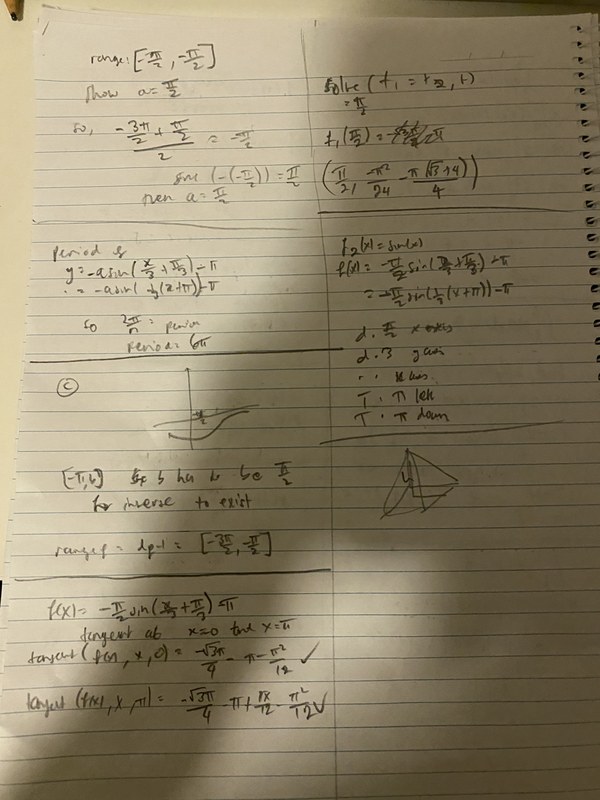 range: [-π/2, -π/2]
show a = π/2
so, (-3π/2 + π/2)/2 = -π/2
(-(-π/2)) = π/2
a = π/2
period of
y = -a sin(x/3 + π/3) - π
= -a sin(1/3(x+π)) - π
so 2π/n = period
period = 6π
(c)
[-π, b] b has to be π/2
for inverse to exist
range f = d f-1 = [-3π/2, -π/2]
f(x) = -π/2 sin(x/3 + π/3) - π
tangent at x=0 and x=π
tangent (f(x), x, 0) = -√3π/4 - π - π²/12 ✓
tangent (f(x), x, π) = -√3π/4 - π + πx/12 - π²/12 ✓
solve (t₁ = t₂, x)
= π/2
t₁(π/2) =
(π/2, -π²/24 - π(√3+4)/4)
f₂(x) = sin(x)
f(x) = -π/2 sin(x/3 + π/3) - π
= -π/2 sin(1/3(x+π)) - π
d. π/2 x axis
d. 3 y axis
x axis
T. π left
T. π down